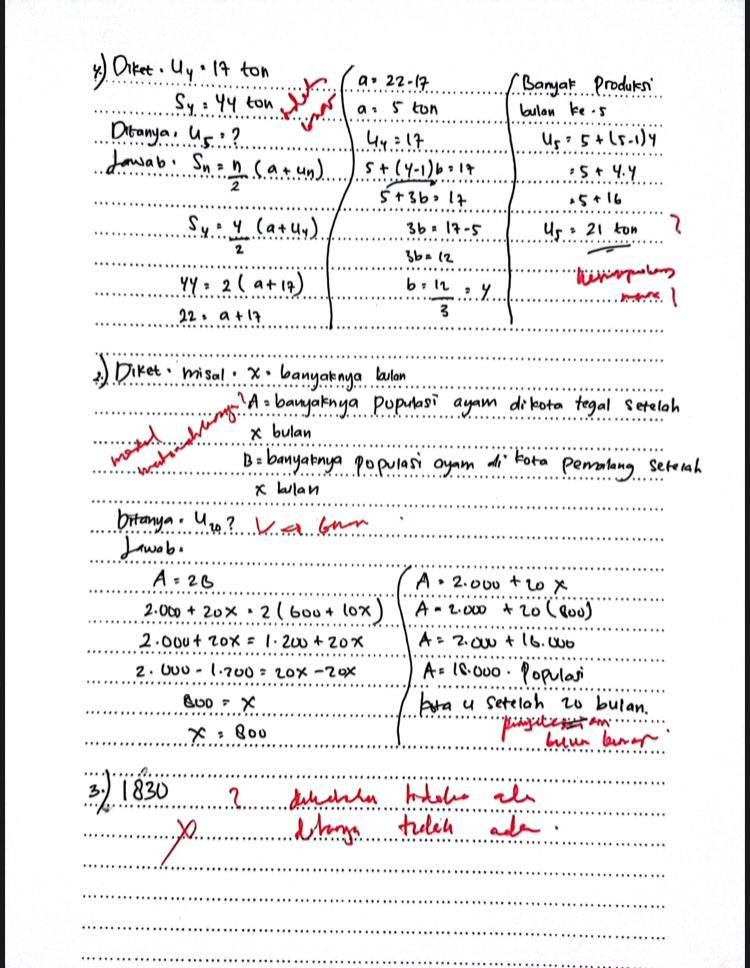 4.) Diket. U4 = 17 ton
S4 = 44 ton
Ditanya. U5 = ?
Jawab. Sn = n/2 (a + un)
S4 = 4/2 (a + U4)
44 = 2 (a + 17)
22 = a + 17
a = 22 - 17
a = 5 ton
U4 = 17
5 + (4-1)b = 17
5 + 3b = 17
3b = 17 - 5
3b = 12
b = 12/3 = 4
Banyak Produksi
bulan ke - 5
U5 = 5 + (5-1)4
= 5 + 4.4
= 5 + 16
U5 = 21 ton ?
2.) Diket. misal. x = banyaknya bulan
A = banyaknya populasi ayam di kota tegal setelah
x bulan
B = banyaknya populasi ayam di kota pemalang setelah
x bulan
Ditanya. U20 ?
Jawab.
A = 2B
2.000 + 20x = 2 (600 + 10x)
2.000 + 20x = 1.200 + 20x
2.000 - 1.200 = 20x - 20x
800 = x
x = 800
A = 2.000 + 20 x
A = 2.000 + 20 (800)
A = 2.000 + 16.000
A = 18.000. Populasi
kota u setelah 20 bulan.
3.) 1830 ?